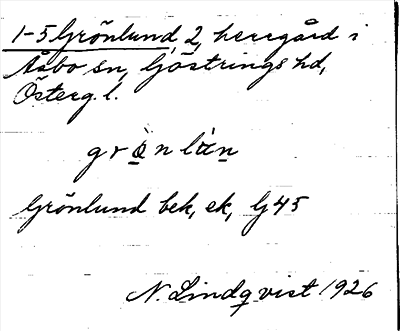 1-5 Grönlund, 2, herrgård i
Åsbo sn, Göstrings hd,
Österg. l.
grö̀nlùn
Grönlund bek, ek, G 45
N. Lindqvist 1926